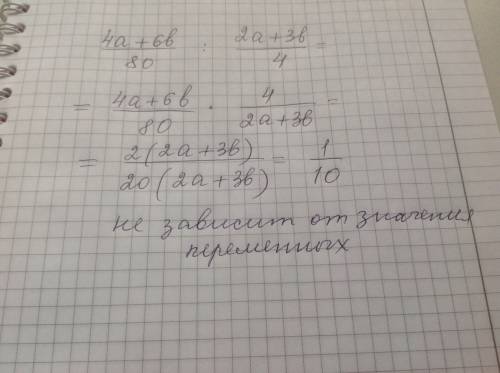 (4а+6в)/80 : (2а+3в)/4 =
= (4а+6в)/80 · 4/(2а+3в) =
= 2(2а+3в)/20(2а+3в) = 1/10
не зависит от значения
переменных